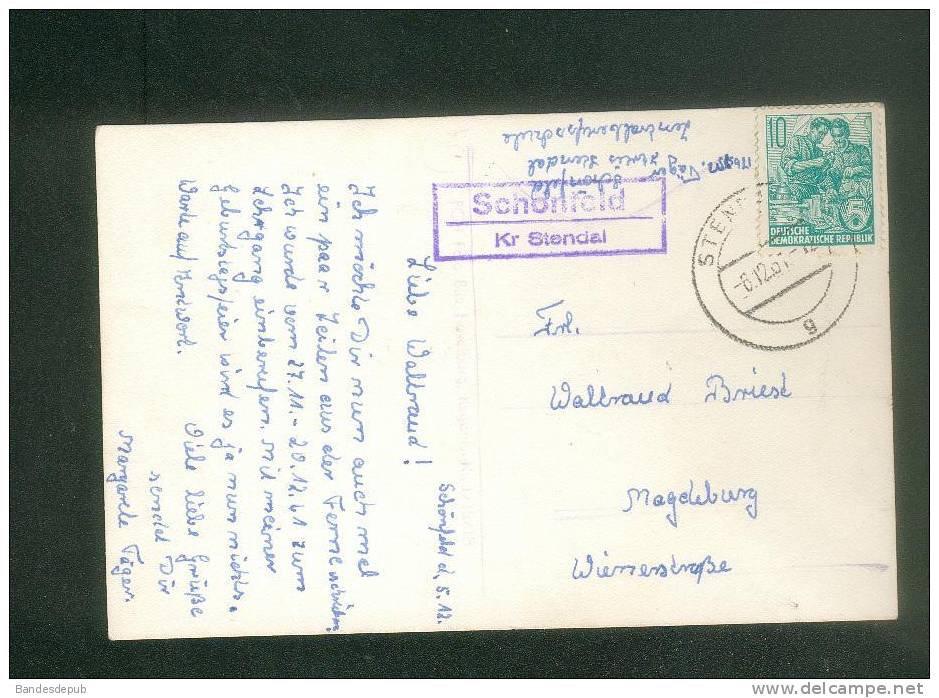 Schönfeld d. 5.12.
Liebe Waltraud!
Ich möchte Dir nun auch mal
ein paar Zeilen aus der Ferne schreiben
Ich wurde vom 27.11. - 20.12.61 zum
Lehrgang einberufen. Mit meiner
Geburtstagsfeier wird es ja nun nichts.
Warte auf Antwort. Viele liebe Grüße
sendet Dir
Margarete Täger.
Täger
Schönfeld
Kreis Stendal
Zentralberufsschule
Schönfeld
Kr Stendal
10
5
DEUTSCHE
DEMOKRATISCHE REPUBLIK
STEN
-6.12.61-
g
Frl.
Waltraud Briest
Magdeburg
Wienerstraße
Bandesdepub
delcampe.net